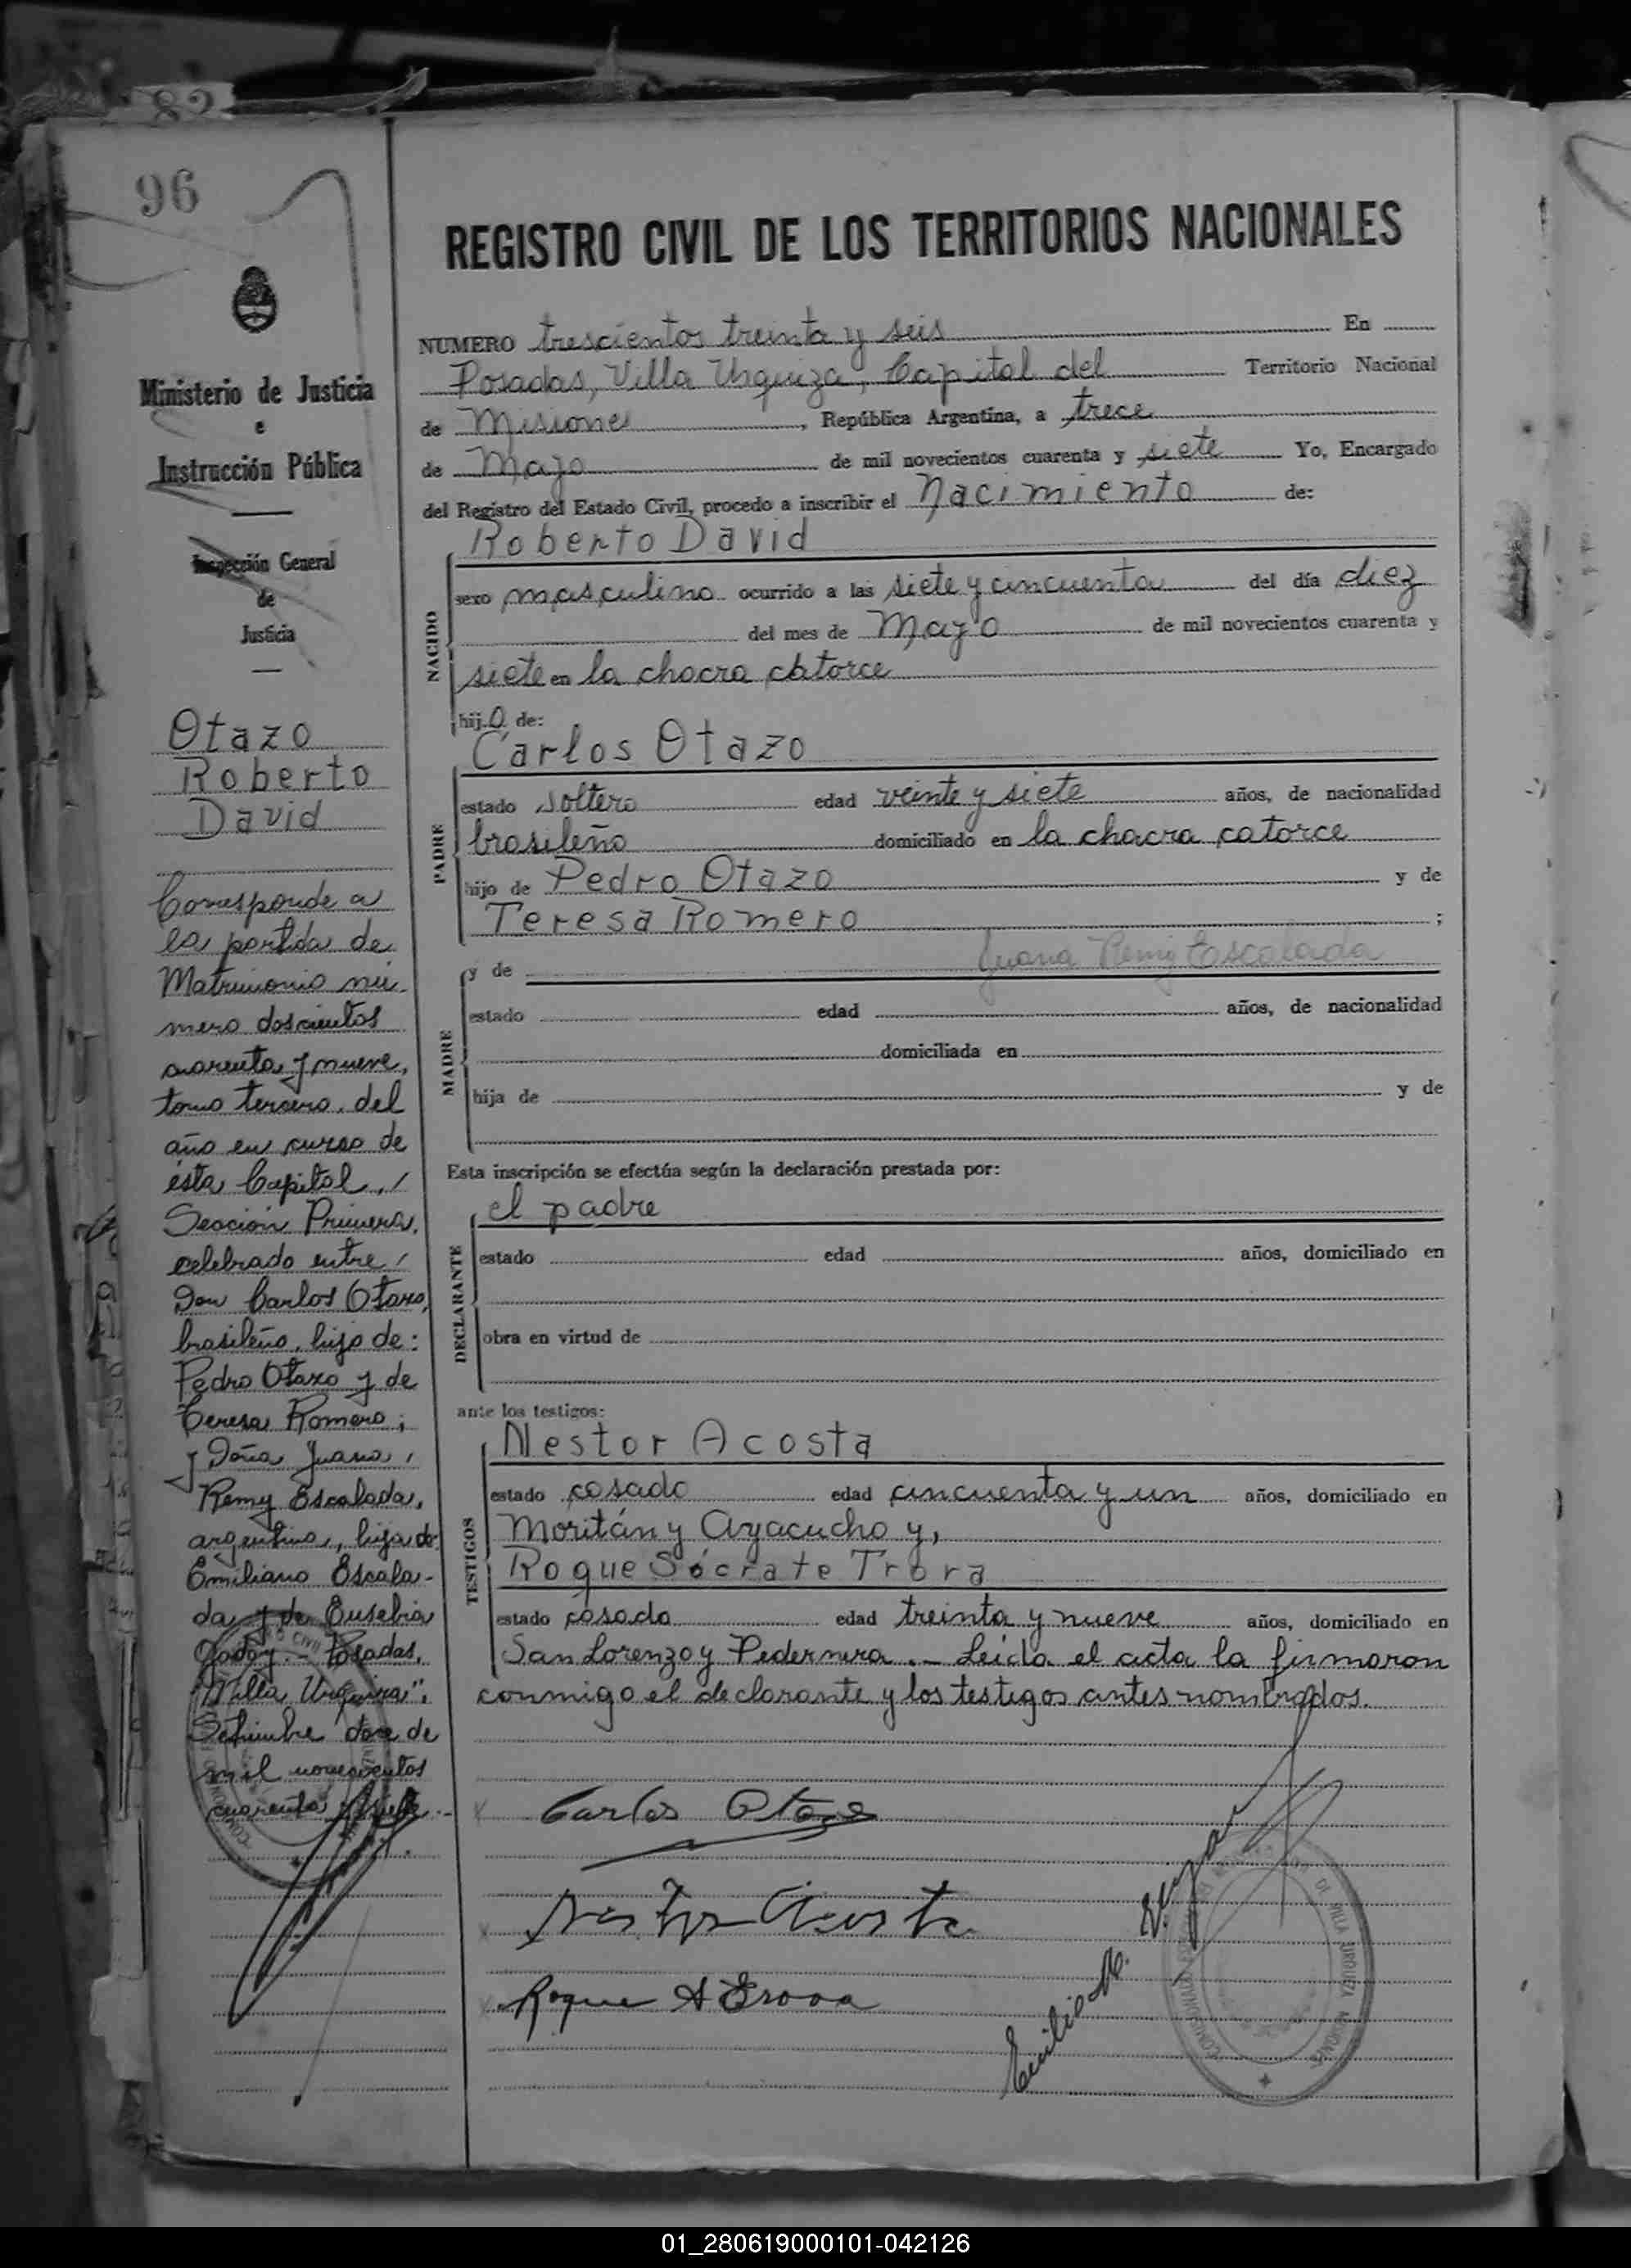 82
96
Ministerio de Justicia
e
Instrucción Pública
Inspección General
de
Justicia
Otazo
Roberto
David
Corresponde a
la partida de
Matrimonio nú-
mero doscientos
cuarenta y nueve,
tomo tercero, del
año en curso de
ésta Capital, /
Sección Primera,
celebrado entre /
Don Carlos Otazo,
brasileño, hijo de:
Pedro Otazo y de
Teresa Romero;
y Doña Juana /
Remy Escalada,
argentina, hija de
Emiliano Escala-
da y de Eusebia
Godoy.- Posadas,
"Villa Urquiza",
Setiembre doce de
mil novecientos
cuarenta y siete.-
REGISTRO CIVIL DE LOS TERRITORIOS NACIONALES
NUMERO trescientos treinta y seis En
Posadas, Villa Urquiza, Capital del Territorio Nacional
de Misiones, República Argentina, a trece
de Mayo de mil novecientos cuarenta y siete Yo, Encargado
del Registro del Estado Civil, procedo a inscribir el Nacimiento de:
Roberto David
NACIDO
sexo masculino ocurrido a las siete y cincuenta del día diez
del mes de Mayo de mil novecientos cuarenta y
siete en la chacra catorce
hijo de:
Carlos Otazo
PADRE
estado soltero edad veinte y siete años, de nacionalidad
brasileño domiciliado en la chacra catorce
hijo de Pedro Otazo y de
Teresa Romero ;
y de Juana Remy Escalada
MADRE
estado edad años, de nacionalidad
domiciliada en
hija de y de
Esta inscripción se efectúa según la declaración prestada por:
el padre
DECLARANTE
estado edad años, domiciliado en
obra en virtud de
ante los testigos:
Nestor Acosta
TESTIGOS
estado casado edad cincuenta y un años, domiciliado en
Moritán y Ayacucho y,
Roque Sócrate Trova
estado casado edad treinta y nueve años, domiciliado en
San Lorenzo y Pedernera.- Leída el acta la firmaron
conmigo el declarante y los testigos antes nombrados.
Carlos Otazo
Nestor Acosta
Roque S Trova
Emilio M.
DE VILLA URQUIZA MISIONES
01_280619000101-042126